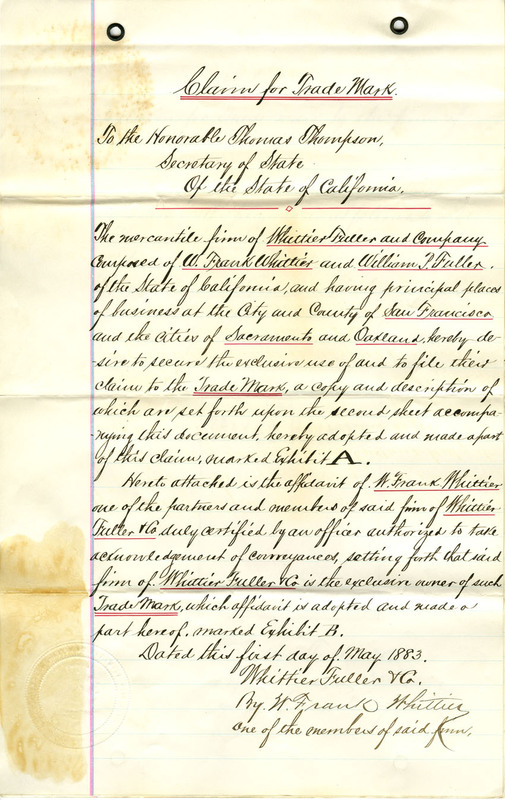 Claim for Trade Mark.
To the Honorable Thomas Thompson,
Secretary of State
Of the State of California.
The mercantile firm of Whittier Fuller and Company
Composed of W. Frank Whittier and William P. Fuller.
of the State of California, and having principal places
of business at the City and County of San Francisco
and the Cities of Sacramento and Oakland, hereby de-
sire to secure the exclusive use of and to file their
claim to the Trade Mark, a copy and description of
which are set forth upon the second sheet accompa-
nying this document, hereby adopted and made a part
of this claim, marked Exhibit A.
Hereto attached is the affidavit of W. Frank Whittier
one of the partners and members of said firm of Whittier
Fuller & Co duly certified by an officer authorized to take
acknowledgement of conveyances, setting forth that said
firm of Whittier Fuller & Co is the exclusive owner of such
Trade Mark, which affidavit is adopted and made a
part hereof, marked Exhibit B.
Dated this first day of May 1883.
Whittier Fuller & Co.
By W. Frank Whittier
one of the members of said firm.